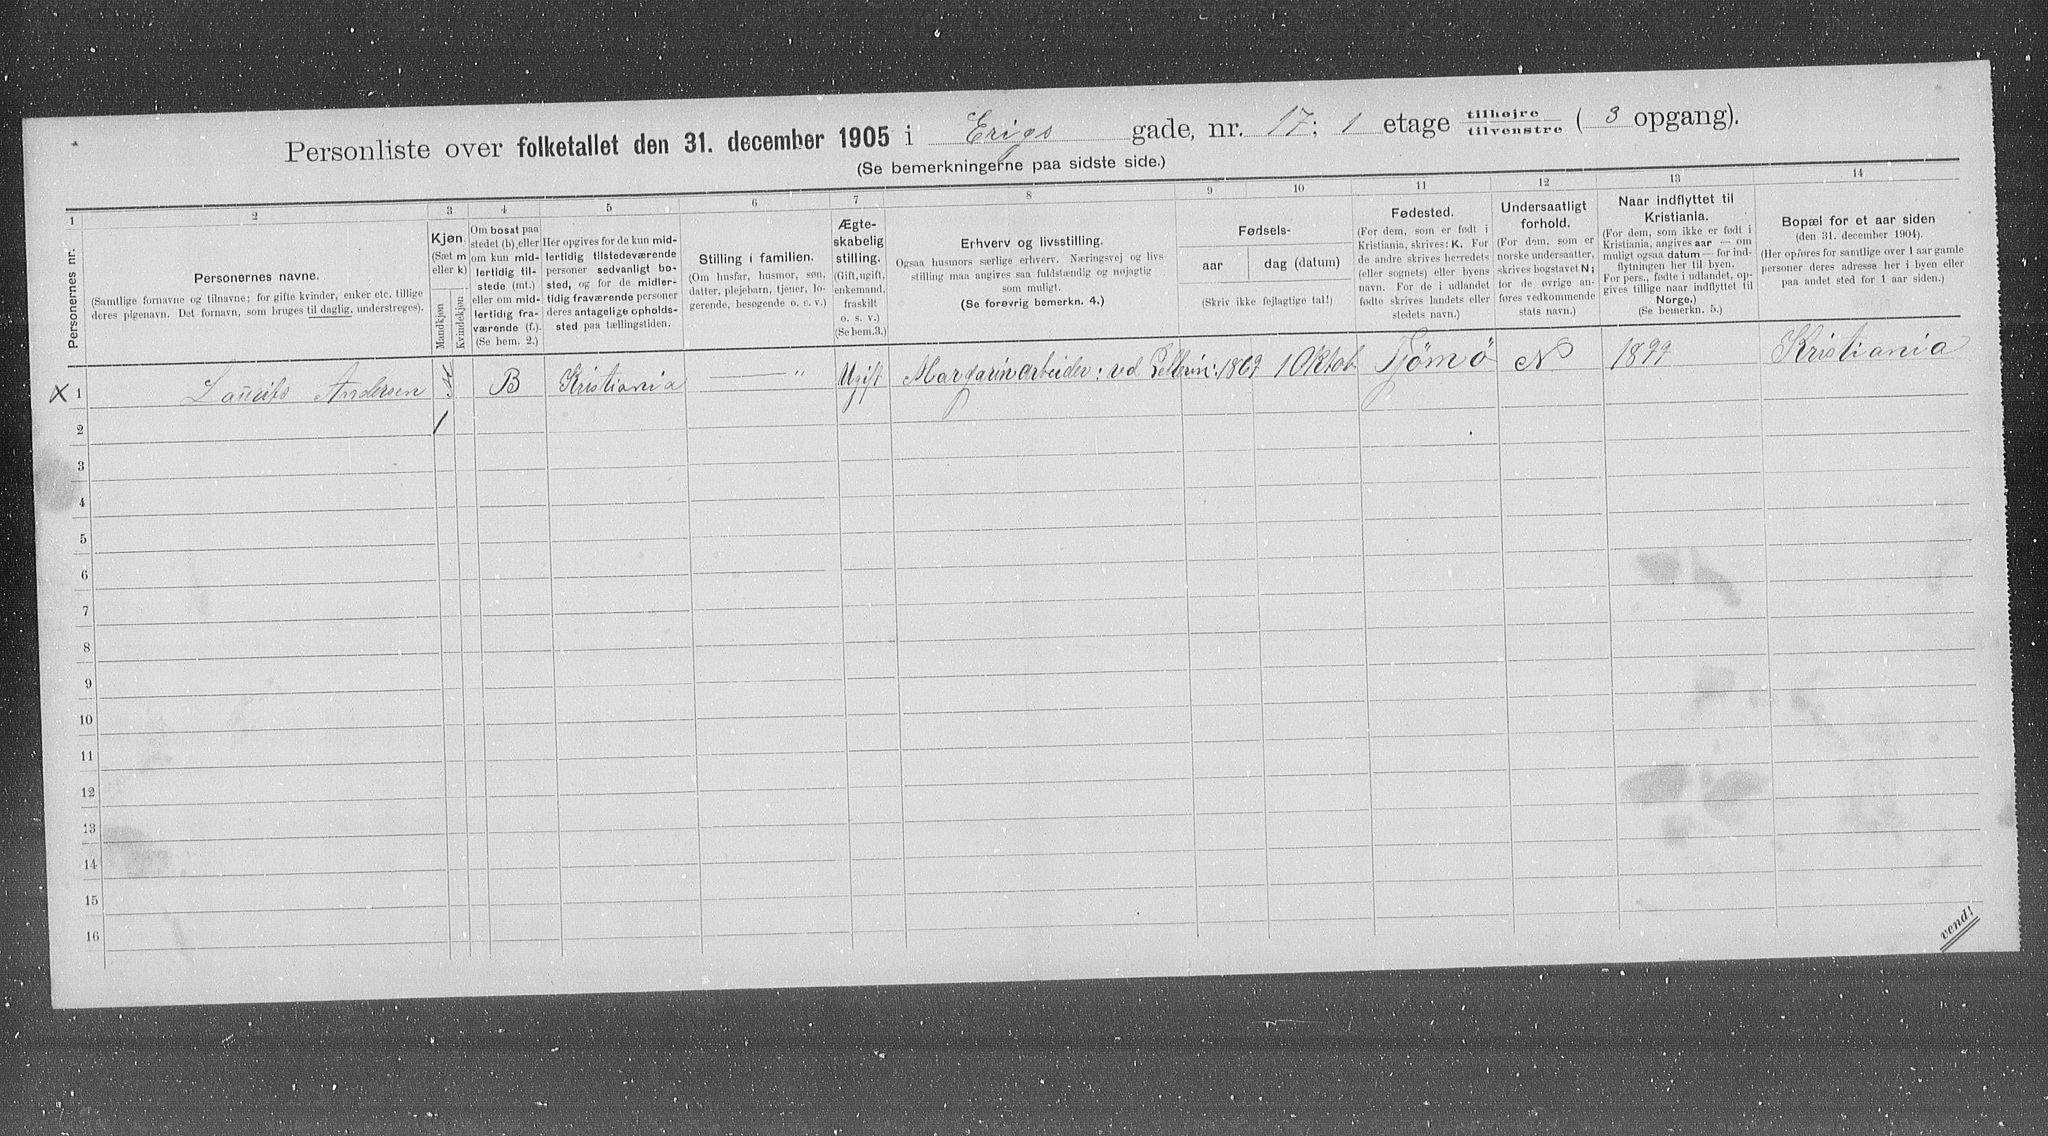 Personliste over folketallet den 31. december 1905 i Erigs gade, nr. 17; 1 etage tilhøjre tilvenstre ( 3 opgang).
(Se bemerkningerne paa sidste side.)
1 2 3 4 5 6 7 8 9 10 11 12 13 14
Personernes nr.
Personernes navne.
(Samtlige fornavne og tilnavne; for gifte kvinder, enker etc. tillige
deres pigenavn. Det fornavn, som bruges til daglig, understreges).
Kjøn.
(Sæt m
eller k)
Mandkjøn
Kvindekjøn.
Om bosat paa
stedet (b), eller
om kun mid-
lertidig til-
stede (mt.)
eller om mid-
lertidig fra-
værende (f.).
(Se bem. 2.)
Her opgives for de kun mid-
lertidig tilstedeværende
personer sedvanligt bo-
sted, og for de midler-
tidig fraværende personer
deres antagelige opholds-
sted paa tællingstiden.
Stilling i familien.
(Om husfar, husmor, søn,
datter, plejebarn, tjener, lo-
gerende, besøgende o. s. v.)
Ægte-
skabelig
stilling.
(Gift, ugift,
enkemand,
fraskilt
o. s. v.)
(Se bem. 3.)
Erhverv og livsstilling.
Ogsaa husmors særlige erhverv. Næringsvej og livs-
stilling maa angives saa fuldstændig og nøjagtig
som muligt.
(Se forøvrig bemerkn. 4.)
Fødsels-
aar
dag (datum)
(Skriv ikke fejlagtige tal!)
Fødested.
(For dem, som er født i
Kristiania, skrives: K. For
de andre skrives herredets
(eller sognets) eller byens
navn. For de i udlandet
fødte skrives landets eller
stedets navn.)
Undersaatligt
forhold.
(For dem, som er
norske undersaatter,
skrives bogstavet N;
for de øvrige an-
føres vedkommende
stats navn.)
Naar indflyttet til
Kristiania.
(For dem, som ikke er født i
Kristiania, angives aar — om
muligt ogsaa datum — for ind-
flytningen her til byen.
For pers., fødte i udlandet, op-
gives tillige naar indflyttet til
Norge.)
(Se bemerkn. 5.)
Bopæl for et aar siden
(den 31. december 1904).
(Her opføres for samtlige over 1 aar gamle
personer deres adresse her i byen eller
paa andet sted for 1 aar siden.)
X 1 Laurits Andersen B Kristiania — " Ugift Margarinarbeider: ved Pellerin: 1869 1 Oktob Tjømø N 1899 Kristiania
2 1
3
4
5
6
7
8
9
10
11
12
13
14
15
16
vend!